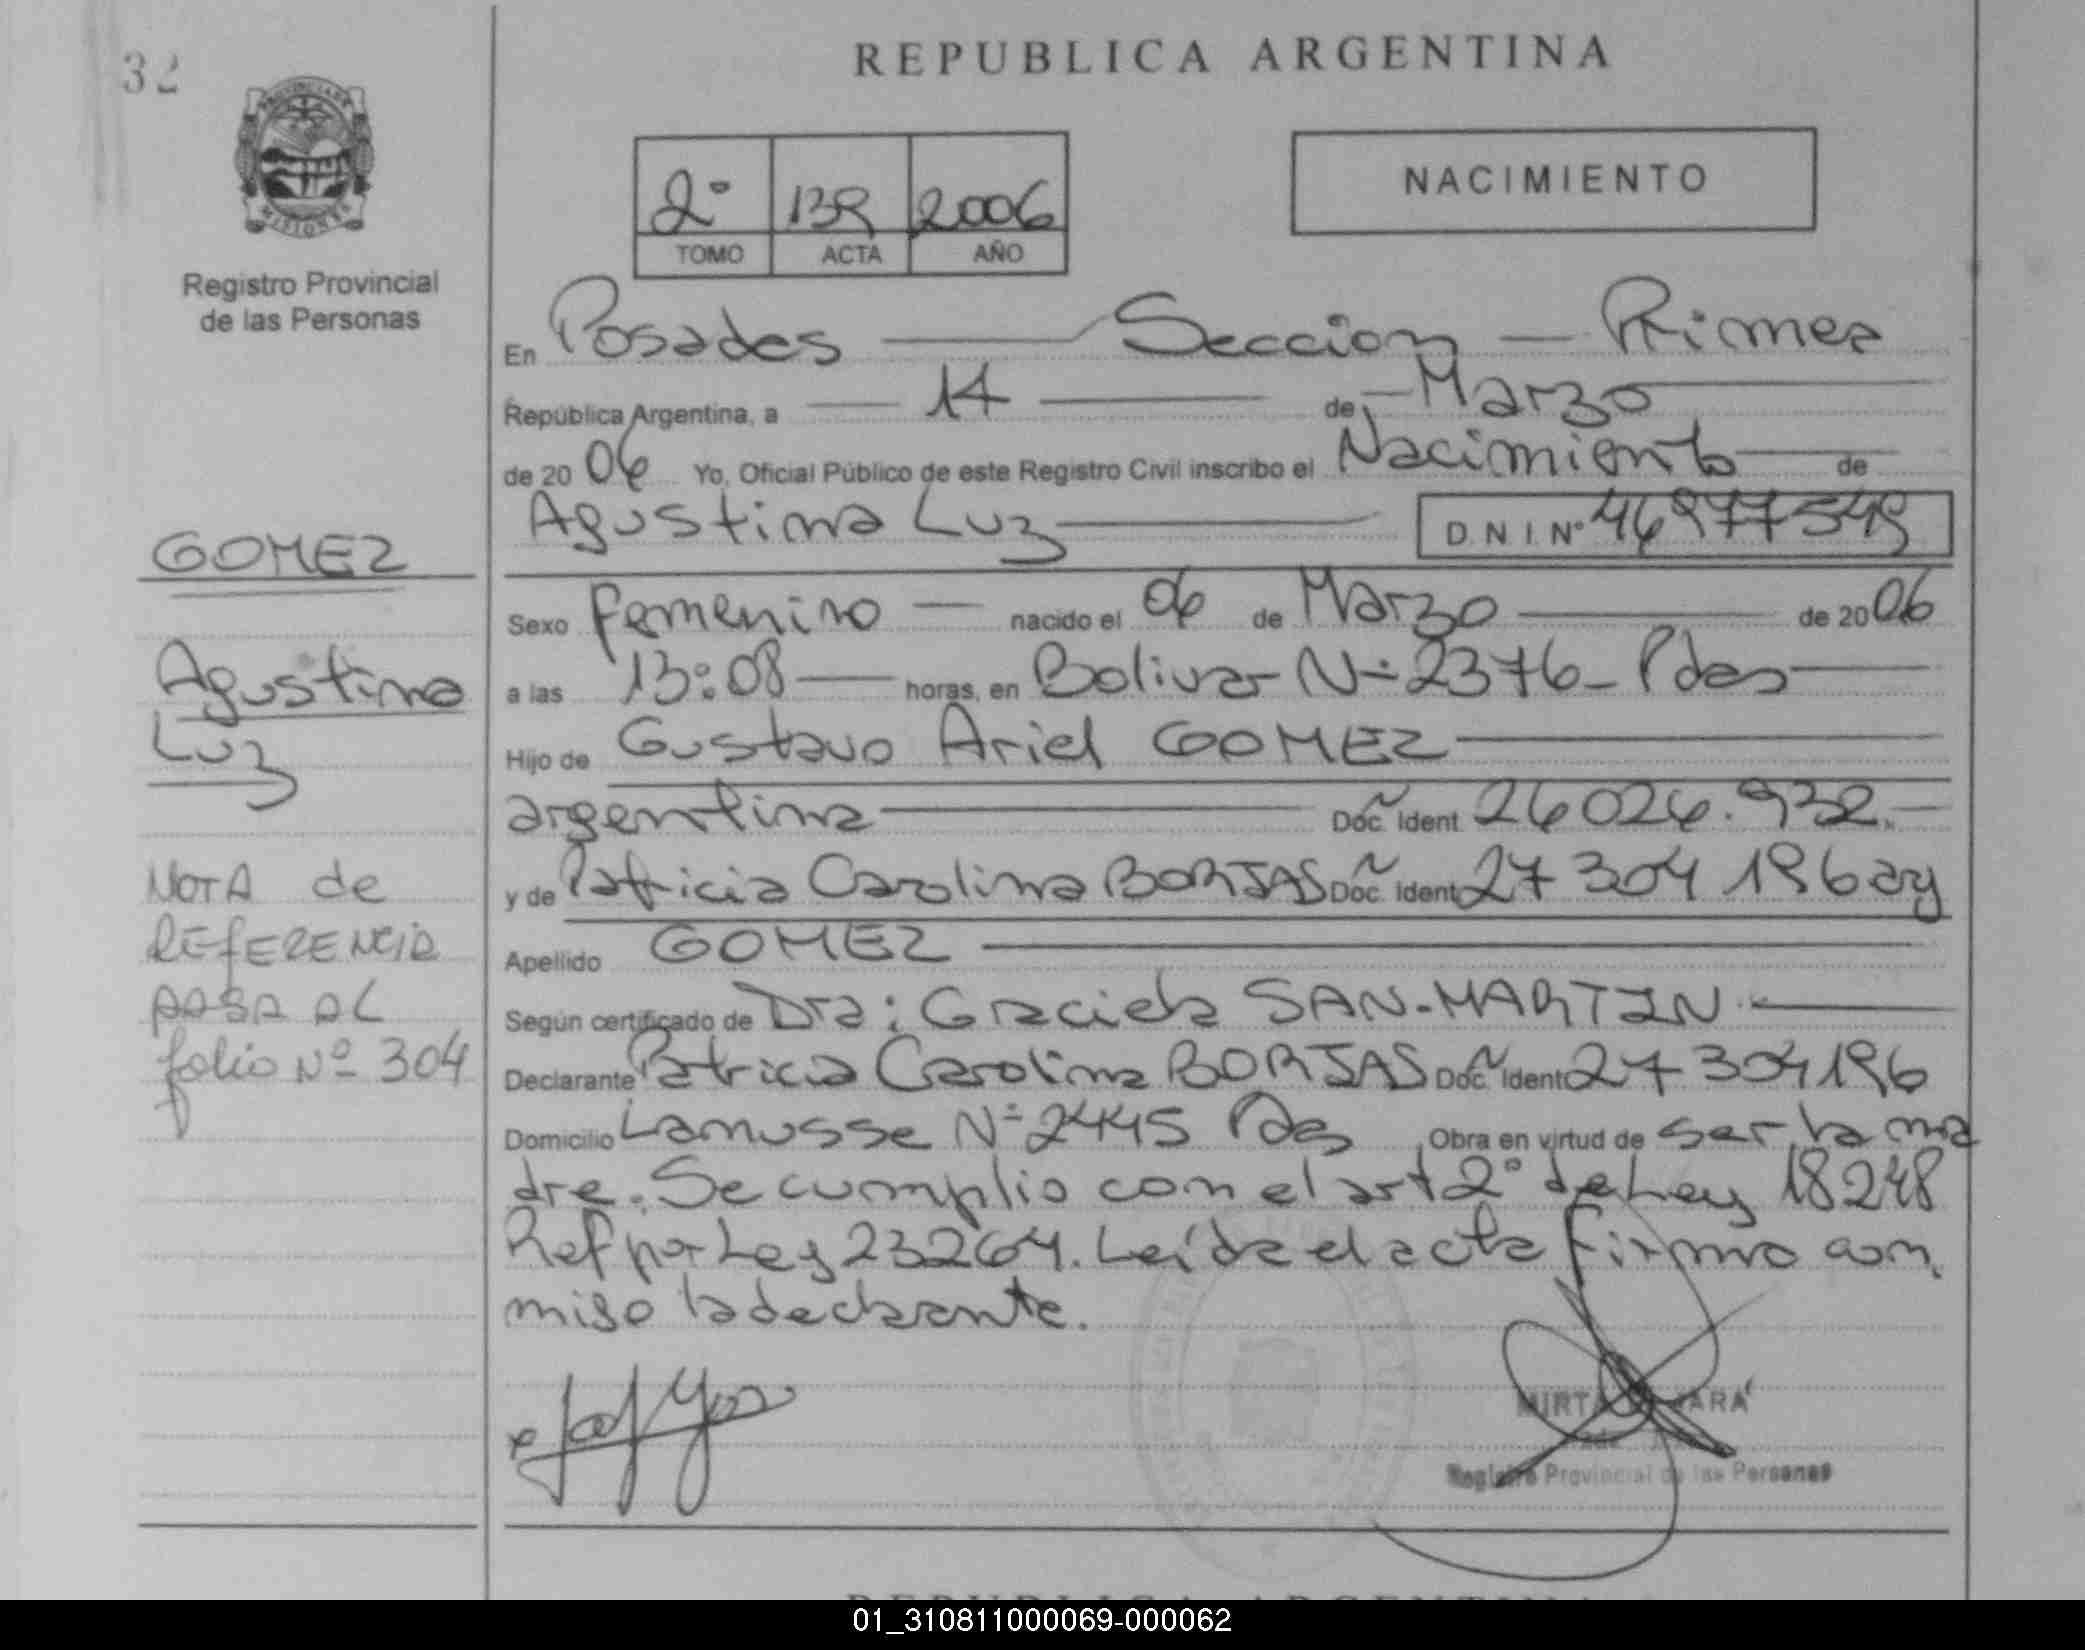 32
REPUBLICA ARGENTINA
PROVINCIA DE MISIONES
Registro Provincial
de las Personas
2º 139 2006
TOMO ACTA AÑO
NACIMIENTO
En Posadas Seccion Primera
República Argentina, a 14 de Marzo
de 2006 Yo, Oficial Público de este Registro Civil inscribo el Nacimiento de
Agustina Luz D.N.I. Nº 46977549
GOMEZ
Agustina
Luz
NOTA de
REfERENCIA
PASA AL
folio Nº 304
Sexo femenino nacido el 06 de Marzo de 2006
a las 13:08 horas, en Bolivar Nº 2376 - Pdas
Hijo de Gustavo Ariel GOMEZ
argentina Doc. Ident. 26026.932.-
y de Patricia Carolina BORJAS Doc. Ident. 27304196 arg
Apellido GOMEZ
Según certificado de Dra: Graciela SAN-MARTIN
Declarante Patricia Carolina BORJAS Doc. Ident. 27304196
Domicilio Lanusse Nº 2445 Pdas Obra en virtud de ser la ma
dre. Se cumplio con el art 2º de Ley 18248
Ref por Ley 23264. Leída el acta firma con
migo la declarante.
MIRTA JARA
Registro Provincial de las Personas
REPUBLICA ARGENTINA
01_310811000069-000062